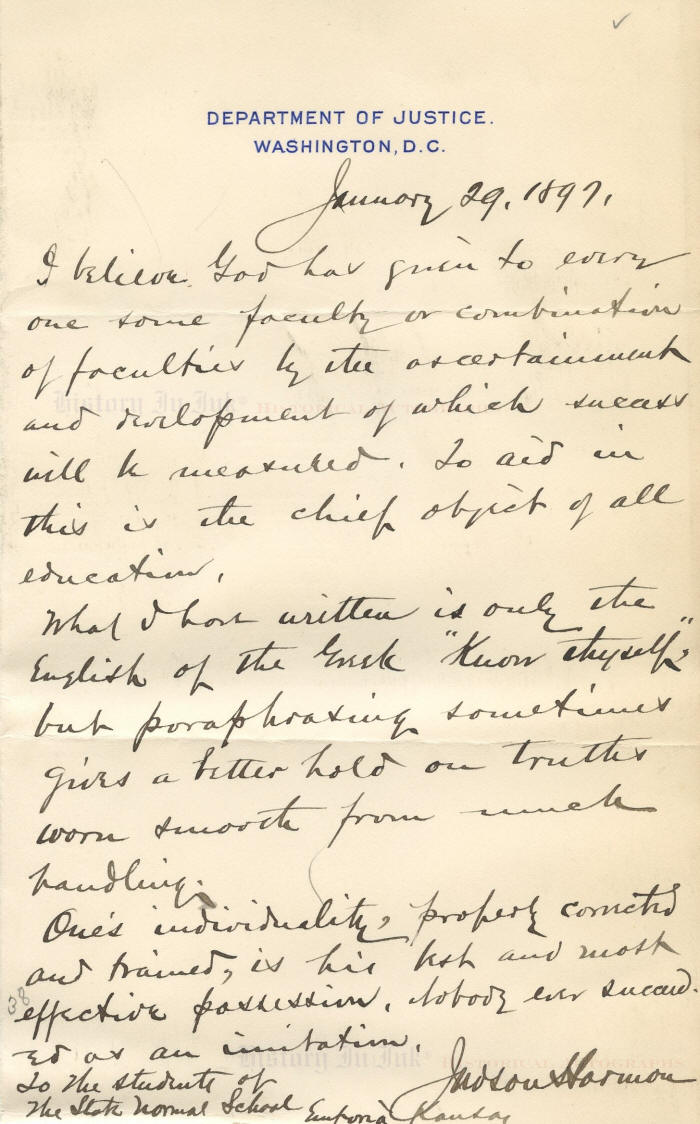 DEPARTMENT OF JUSTICE.
WASHINGTON, D.C.
January 29, 1897.
I believe God has given to every
one some faculty or combination
of faculties by the ascertainment
and development of which success
will be measured. To aid in
this is the chief object of all
education.
What I have written is only the
English of the Greek "Know thyself,"
but paraphrasing sometimes
gives a better hold on truths
worn smooth from much
handling.
One's individuality, properly corrected
and trained, is his best and most
effective possession. Nobody ever succeed-
ed as an imitation.
Judson Harmon
To the students of
The State Normal School Emporia Kansas
38
History In Ink® HISTORICAL AUTOGRAPHS
History In Ink® HISTORICAL AUTOGRAPHS